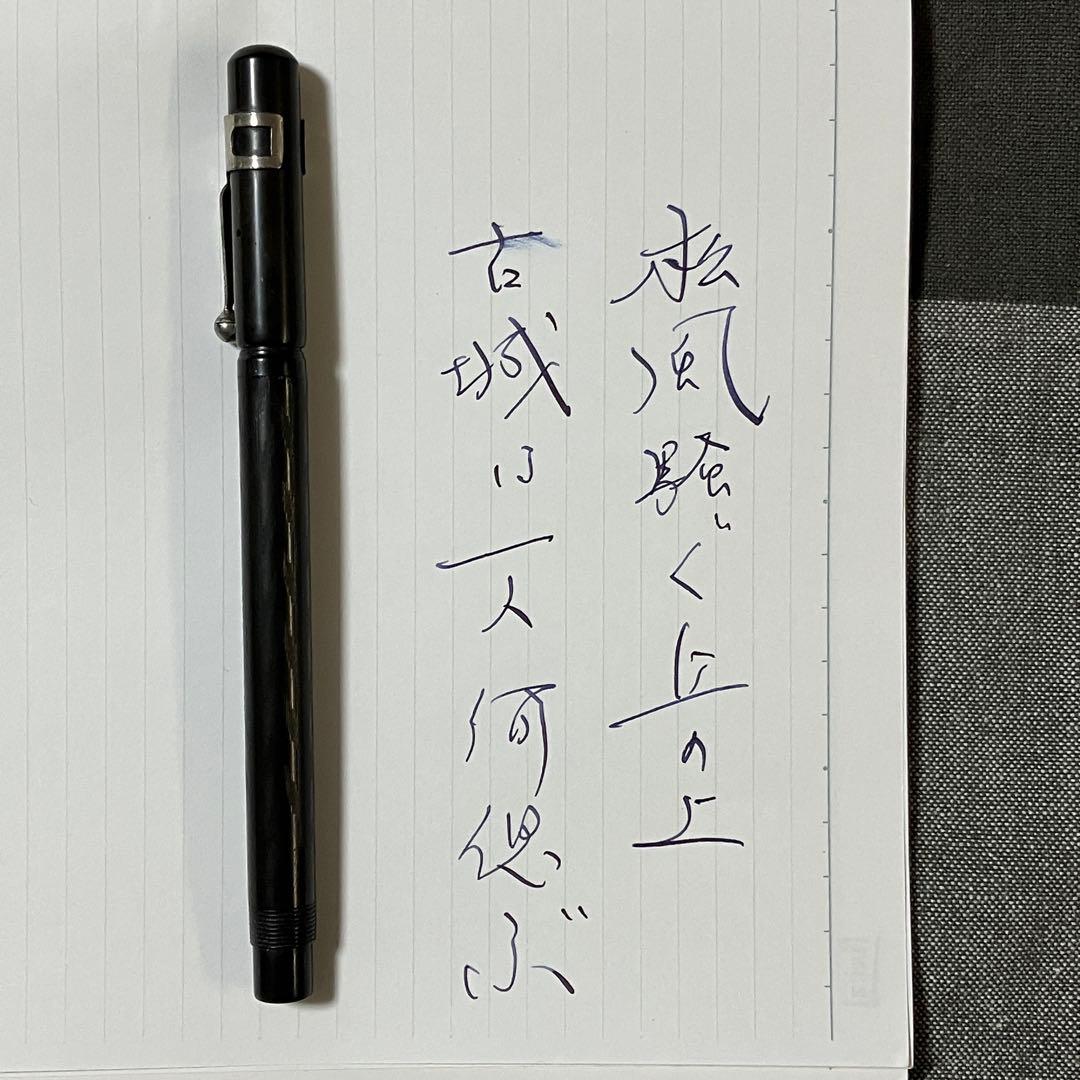 松風騒ぐ丘の上
古城は一人何偲ぶ